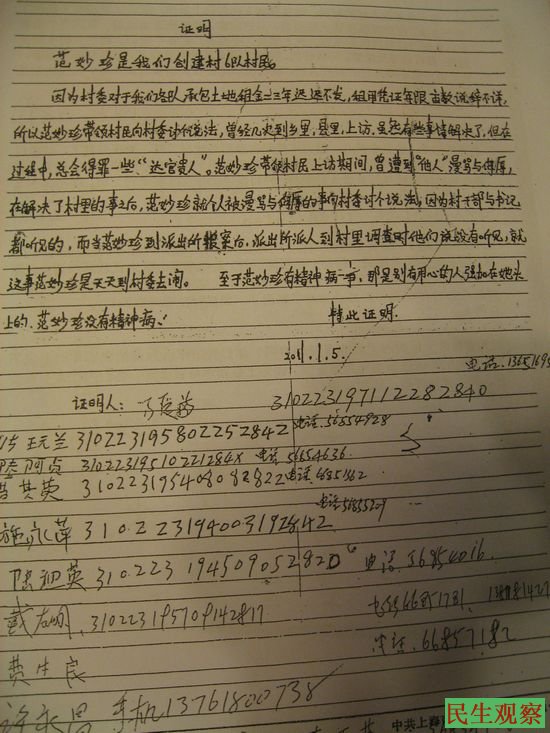 证明
范妙珍是我们创建村6队村民。
因为村委对于我们各队承包土地租金二三年迟迟不发，租用凭证年限亩数说辞不详，
所以范妙珍带领村民向村委讨个说法，曾经几次到乡里，县里，上访。虽然有些事情解决了，但在
过程中，总会得罪一些“达官贵人”。范妙珍带领村民上访期间，曾遭到“他人”漫骂与侮辱，
在解决了村里的事之后，范妙珍就个人被漫骂与侮辱的事向村委讨个说法，因为村干部与书记
都听见的，而当范妙珍到派出所报案后，派出所派人到村里调查时他们说没有听见，就
这事范妙珍是天天到村委去闹。 至于范妙珍有精神病一事，那是别有用心的人强加在她头
上的，范妙珍没有精神病。 特此证明.
2011.1.5.
电话.
证明人： 310223197112282840
王元兰 310223195802252842 电话.56654928
31022319510221284X 电话 56654636
英 310223195408082822 电话
施永萍 310223194003192842 电话
陈初英 310223194509052820 电话 56854016
戴左明 310223195709142817 电话66851781
费生良 电话.66857182
手机13761800738
中共上海
民生观察